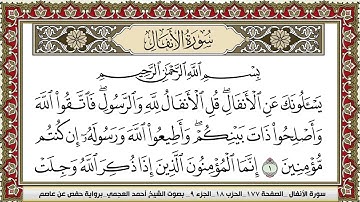 سُورَةُ الأَنفَالِ
بِسْمِ اللَّهِ الرَّحْمَٰنِ الرَّحِيمِ
يَسْـَٔلُونَكَ عَنِ ٱلْأَنفَالِۖ قُلِ ٱلْأَنفَالُ لِلَّهِ وَٱلرَّسُولِۖ فَٱتَّقُوا۟ ٱللَّهَ
وَأَصْلِحُوا۟ ذَاتَ بَيْنِكُمْۖ وَأَطِيعُوا۟ ٱللَّهَ وَرَسُولَهُۥٓ إِن كُنتُم
مُّؤْمِنِينَ ١ إِنَّمَا ٱلْمُؤْمِنُونَ ٱلَّذِينَ إِذَا ذُكِرَ ٱللَّهُ وَجِلَتْ
سورة الأنفال _الصفحة ١٧٧_الحزب ١٨_الجزء ٩_ بصوت الشيخ أحمد العجمي_برواية حفص عن عاصم